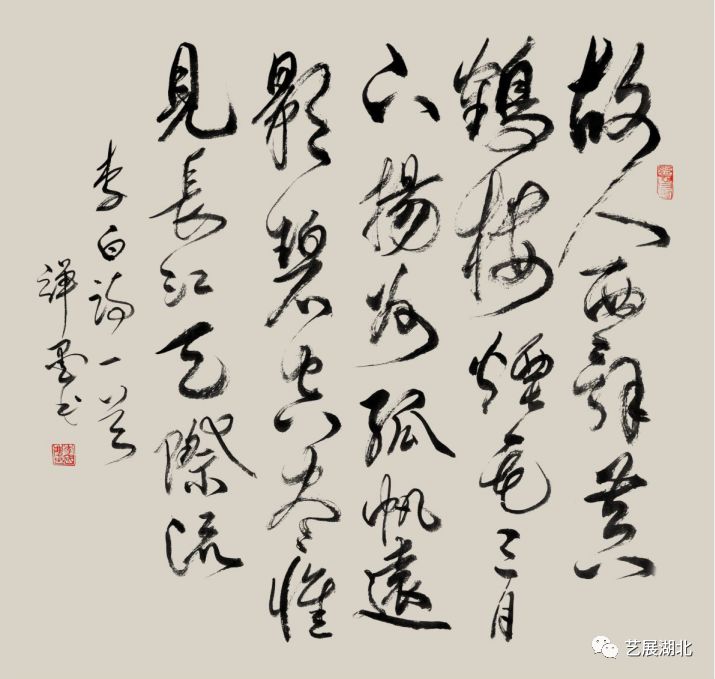 故人西辞黄
鹤楼煙花三月
下揚州孤帆遠
影碧空尽惟
見長江天際流
李白詩一首
艺展湖北